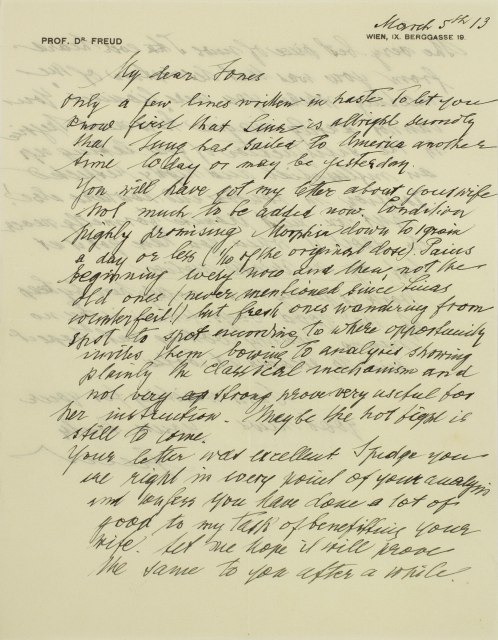 March 5th 13
PROF. DR. FREUD
WIEN, IX. BERGGASSE 19.
My dear Jones
Only a few lines written in haste to let you
know first that Lina is allright secondly
that Jung has sailed to America another
time today or may be yesterday.
You will have got my letter about your wife
Not much to be added now. Condition
highly promising Morphia down to 1 gram
a day or less (1/10 of the original dose). Pains
beginning every now and then, not the
old ones (never mentioned since I was
counterfeit!) but fresh ones wandering from
spot to spot according to where opportunity
invites them bowing to analysis showing
plainly the classical mechanism and
not very strong prove very useful for
her instruction. Maybe the hot fight is
still to come.
Your letter was excellent I judge you
are right in every point of your analysis
and you have done a lot of
good to my task of benefitting your
wife. Let me hope it will prove
the same to you after a while.